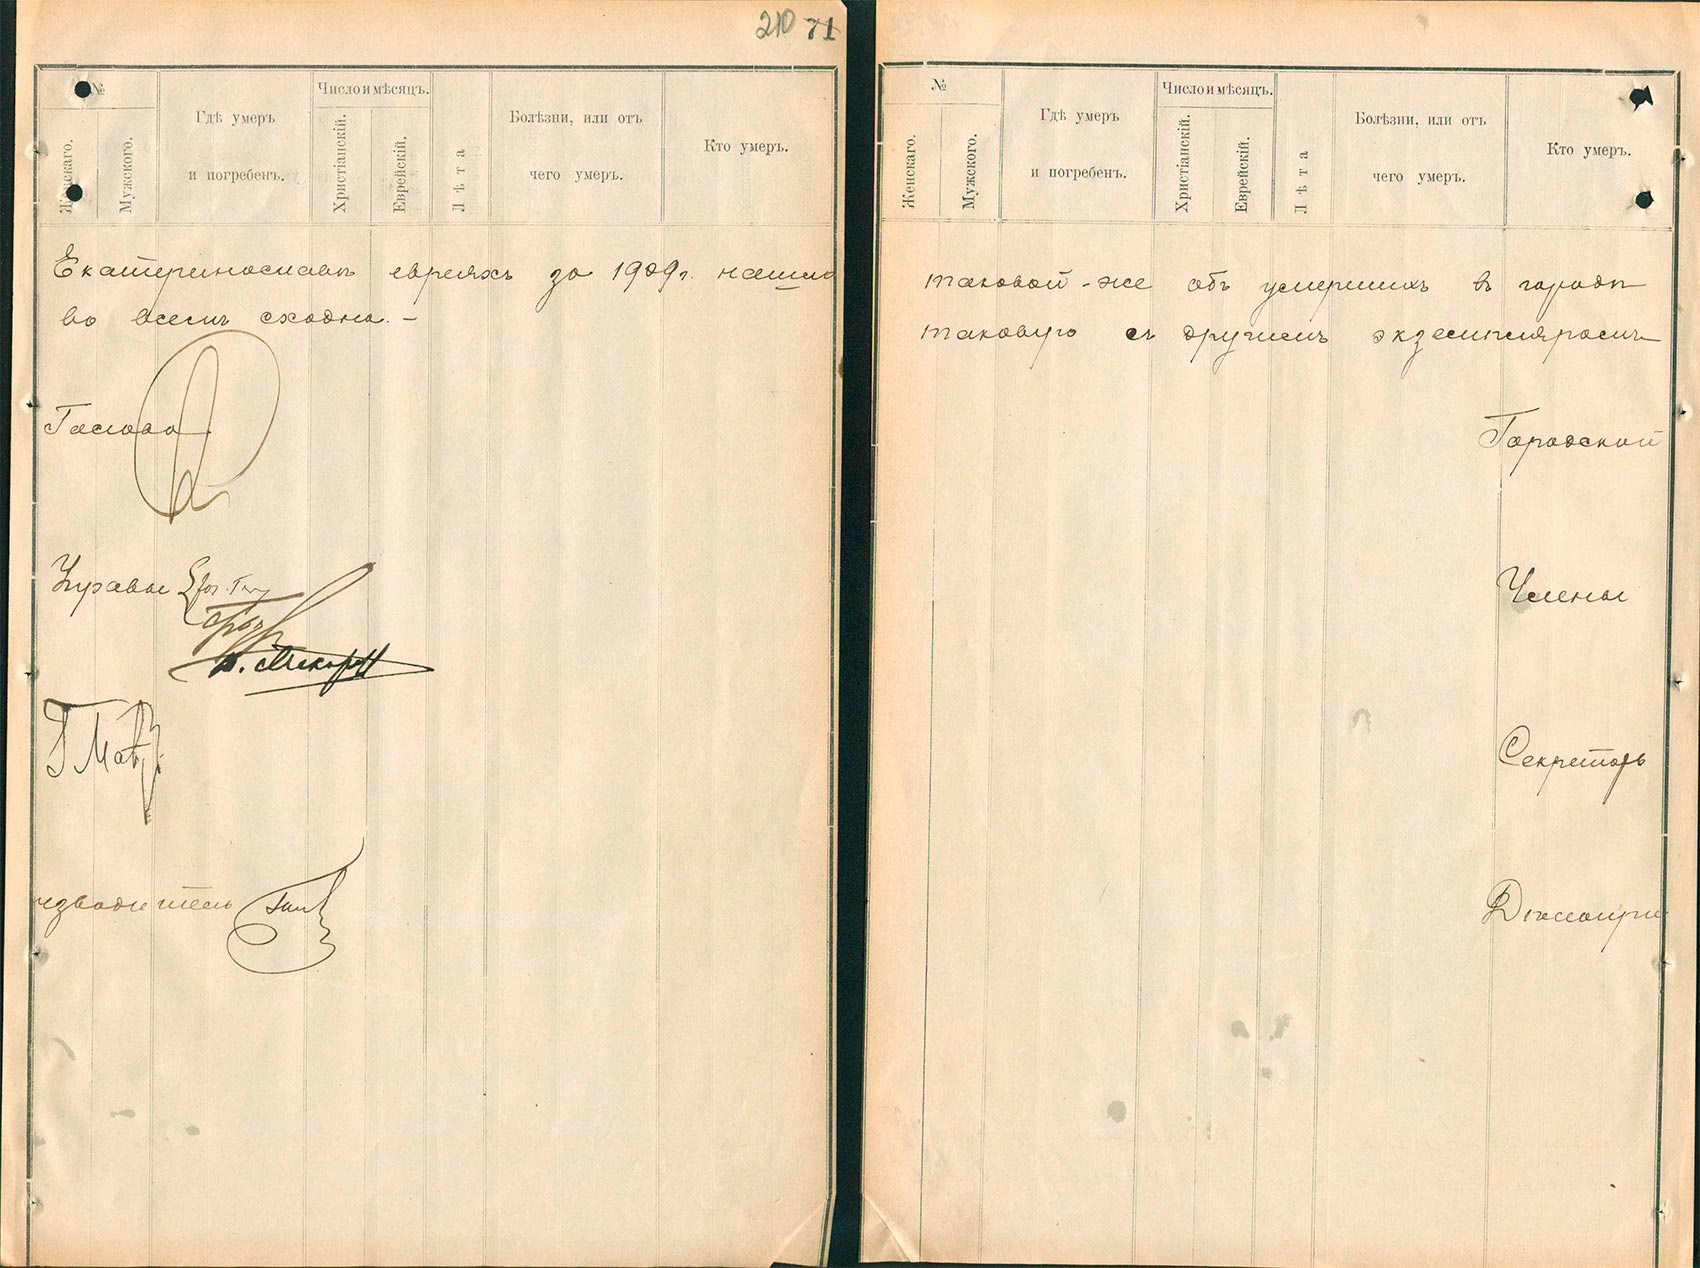 210 71
№
Женскаго.
Мужского.
Гдѣ умеръ
и погребенъ.
Число и мѣсяцъ.
Христіанскій.
Еврейскій.
Лѣта
Болѣзни, или отъ
чего умеръ.
Кто умеръ.
Екатеринославѣ евреяхъ за 1909 г. нашла
во всемъ сходна. –
Голова
Управы
изводитель
№
Женскаго.
Мужского.
Гдѣ умеръ
и погребенъ.
Число и мѣсяцъ.
Христіанскій.
Еврейскій.
Лѣта
Болѣзни, или отъ
чего умеръ.
Кто умеръ.
таковой-же объ умершихъ въ городѣ
таковую съ другимъ экземпляромъ
Городской
Члены
Секретарь
Дѣлопро